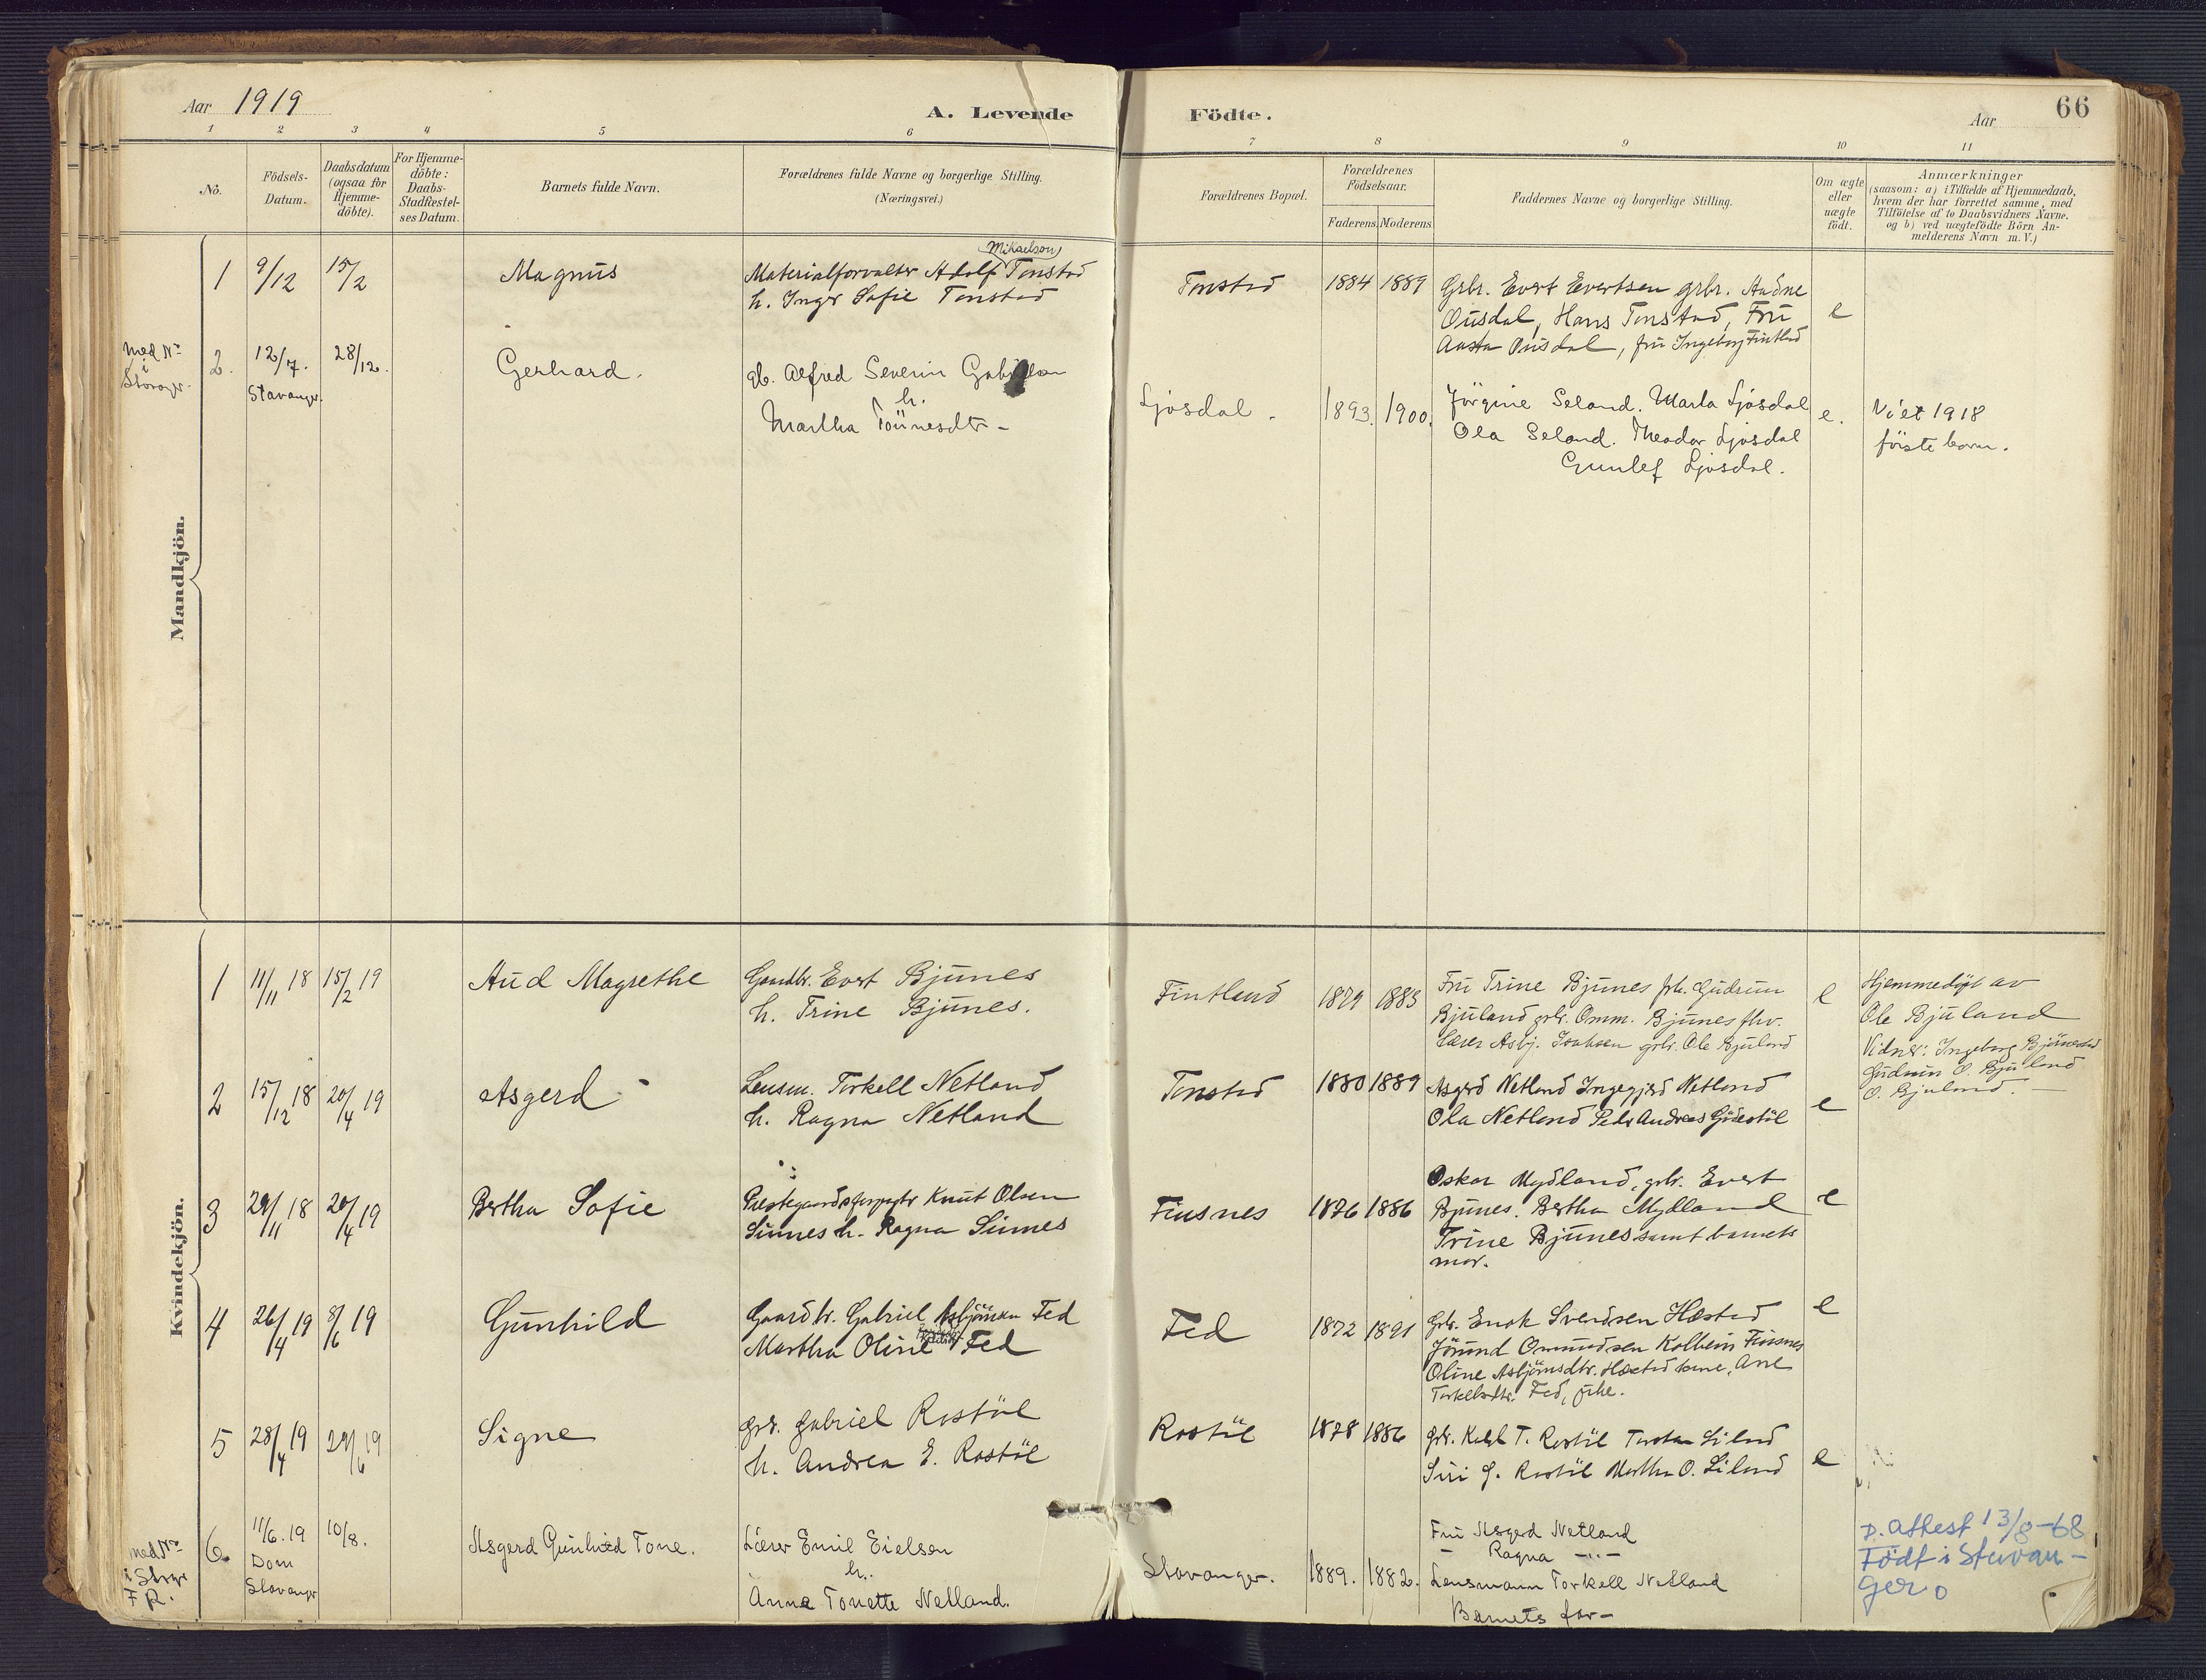 Aar 1919
A. Levende
Födte.
Aar
66
1 2 3 4 5 6 7 8 9 10 11
No.
Födsels-
Datum.
Daabsdatum
(ogsaa for
Hjemme-
döbte).
For Hjemme-
döbte:
Daabs-
Stadfæstel-
ses Datum.
Barnets fulde Navn.
Forældrenes fulde Navne og borgerlige Stilling.
(Næringsvei.)
Forældrenes Bopæl.
Forældrenes
Födselsaar.
Faderens. Moderens
Faddernes Navne og borgerlige Stilling.
Om ægte
eller
uægte
födt.
Anmærkninger
(saasom: a) i Tilfælde af Hjemmedaab,
hvem der har forrettet samme, med
Tilföielse af to Daabsvidners Navne.
og b) ved uægtefödte Börn An-
melderens Navn m. V.)
Mandkjön.
1 9/12 15/2
Magnus
Mikaelson
Materialforvalter Adolf Tonstad
h. Inger Sofie Tonstad
Tonstad
1884 1889
Grbr. Evert Evertsen grbr. Audne
Ousdal, Hans Tonstad, Fru
Aasta Ousdal, fru Ingeborg Fintland
e
med No
i
Stavager.
2. 12/7. 28/12.
Stavanger.
Gerhard.
gb. Alfred Severin
h.
Martha Tönnesdtr -
Ljosdal.
1893. 1900.
Jörgine Seland. Marta Ljosdal
Ola Seland. Theodor Ljosdal
Gunlef Ljosdal.
e.
Vi'et 1918
förste barn.
Kvindekjön.
1 11/11 18 15/2 19
Aud Magrethe
Gaardbr. Evert Bjunes
h. Trine Bjunes.
Fintland
1879 1883
Fru Trine Bjunes frk. Gudrun
Bjuland grbr. Omm. Bjunes fhv.
Lærer Asbj. Isaksen grbr. Ole Bjuland
e
Hjemmedöpt av
Ole Bjuland
Vidner: Ingeborg
Gudrun O. Bjuland
O. Bjuland.
2 15/12 18 20/4 19
Asgerd
Lensm. Torkell Netland
h. Ragna Netland
Tonstad
1880 1889
Asgerd Netland Ingegjerd Netland
Ola Netland Peder Andreas Gjdestöl
e
3 29/11 18 20/4 19
Bertha Sofie
Prestegaardsforpagter Knut Olsen
Sinnes h. Ragna Sinnes
Fiusnes
1876 1886
Oskar Mydland, grbr. Evert
Bjunes. Bertha Mydland
Trine Bjunes samt barnets
mor.
e
4 26/4 19 8/6 19
Gunhild
Gaardbr. Gabriel Asbjörnsen Fed
Martha Oline Fed
Fed
1872 1891
Grbr. Enok Svendsen Hæstad
Jörund Omundsen Kolbein Fiusnes
Oline Asbjörnsdtr. Hæstad kone, Ane
Torkelsdtr. Fed, pike.
e
5 28/4 19 29/6 19
Signe
grbr. Gabriel Rostöl
h. Andrea E. Rostöl
Rostöl
1878 1886
grbr. Karl T. Rostöl Torstan Liland
Siri G. Rostöl Martha O. Liland
e
med No
i Stvgr
F R.
6. 11/6. 19 10/8.
Dom
Stavanger
Asgerd Gunhild Tone.
Lærer Emil Eielsen
h.
Anna Tonette Netland.
Stavanger.
1889. 1882.
Fru Asgerd Netland
- Ragna -"-
Lensmann Torkell Netland
Barnets far -
D. attest 13/8-68
Födt i Stavan-
ger.